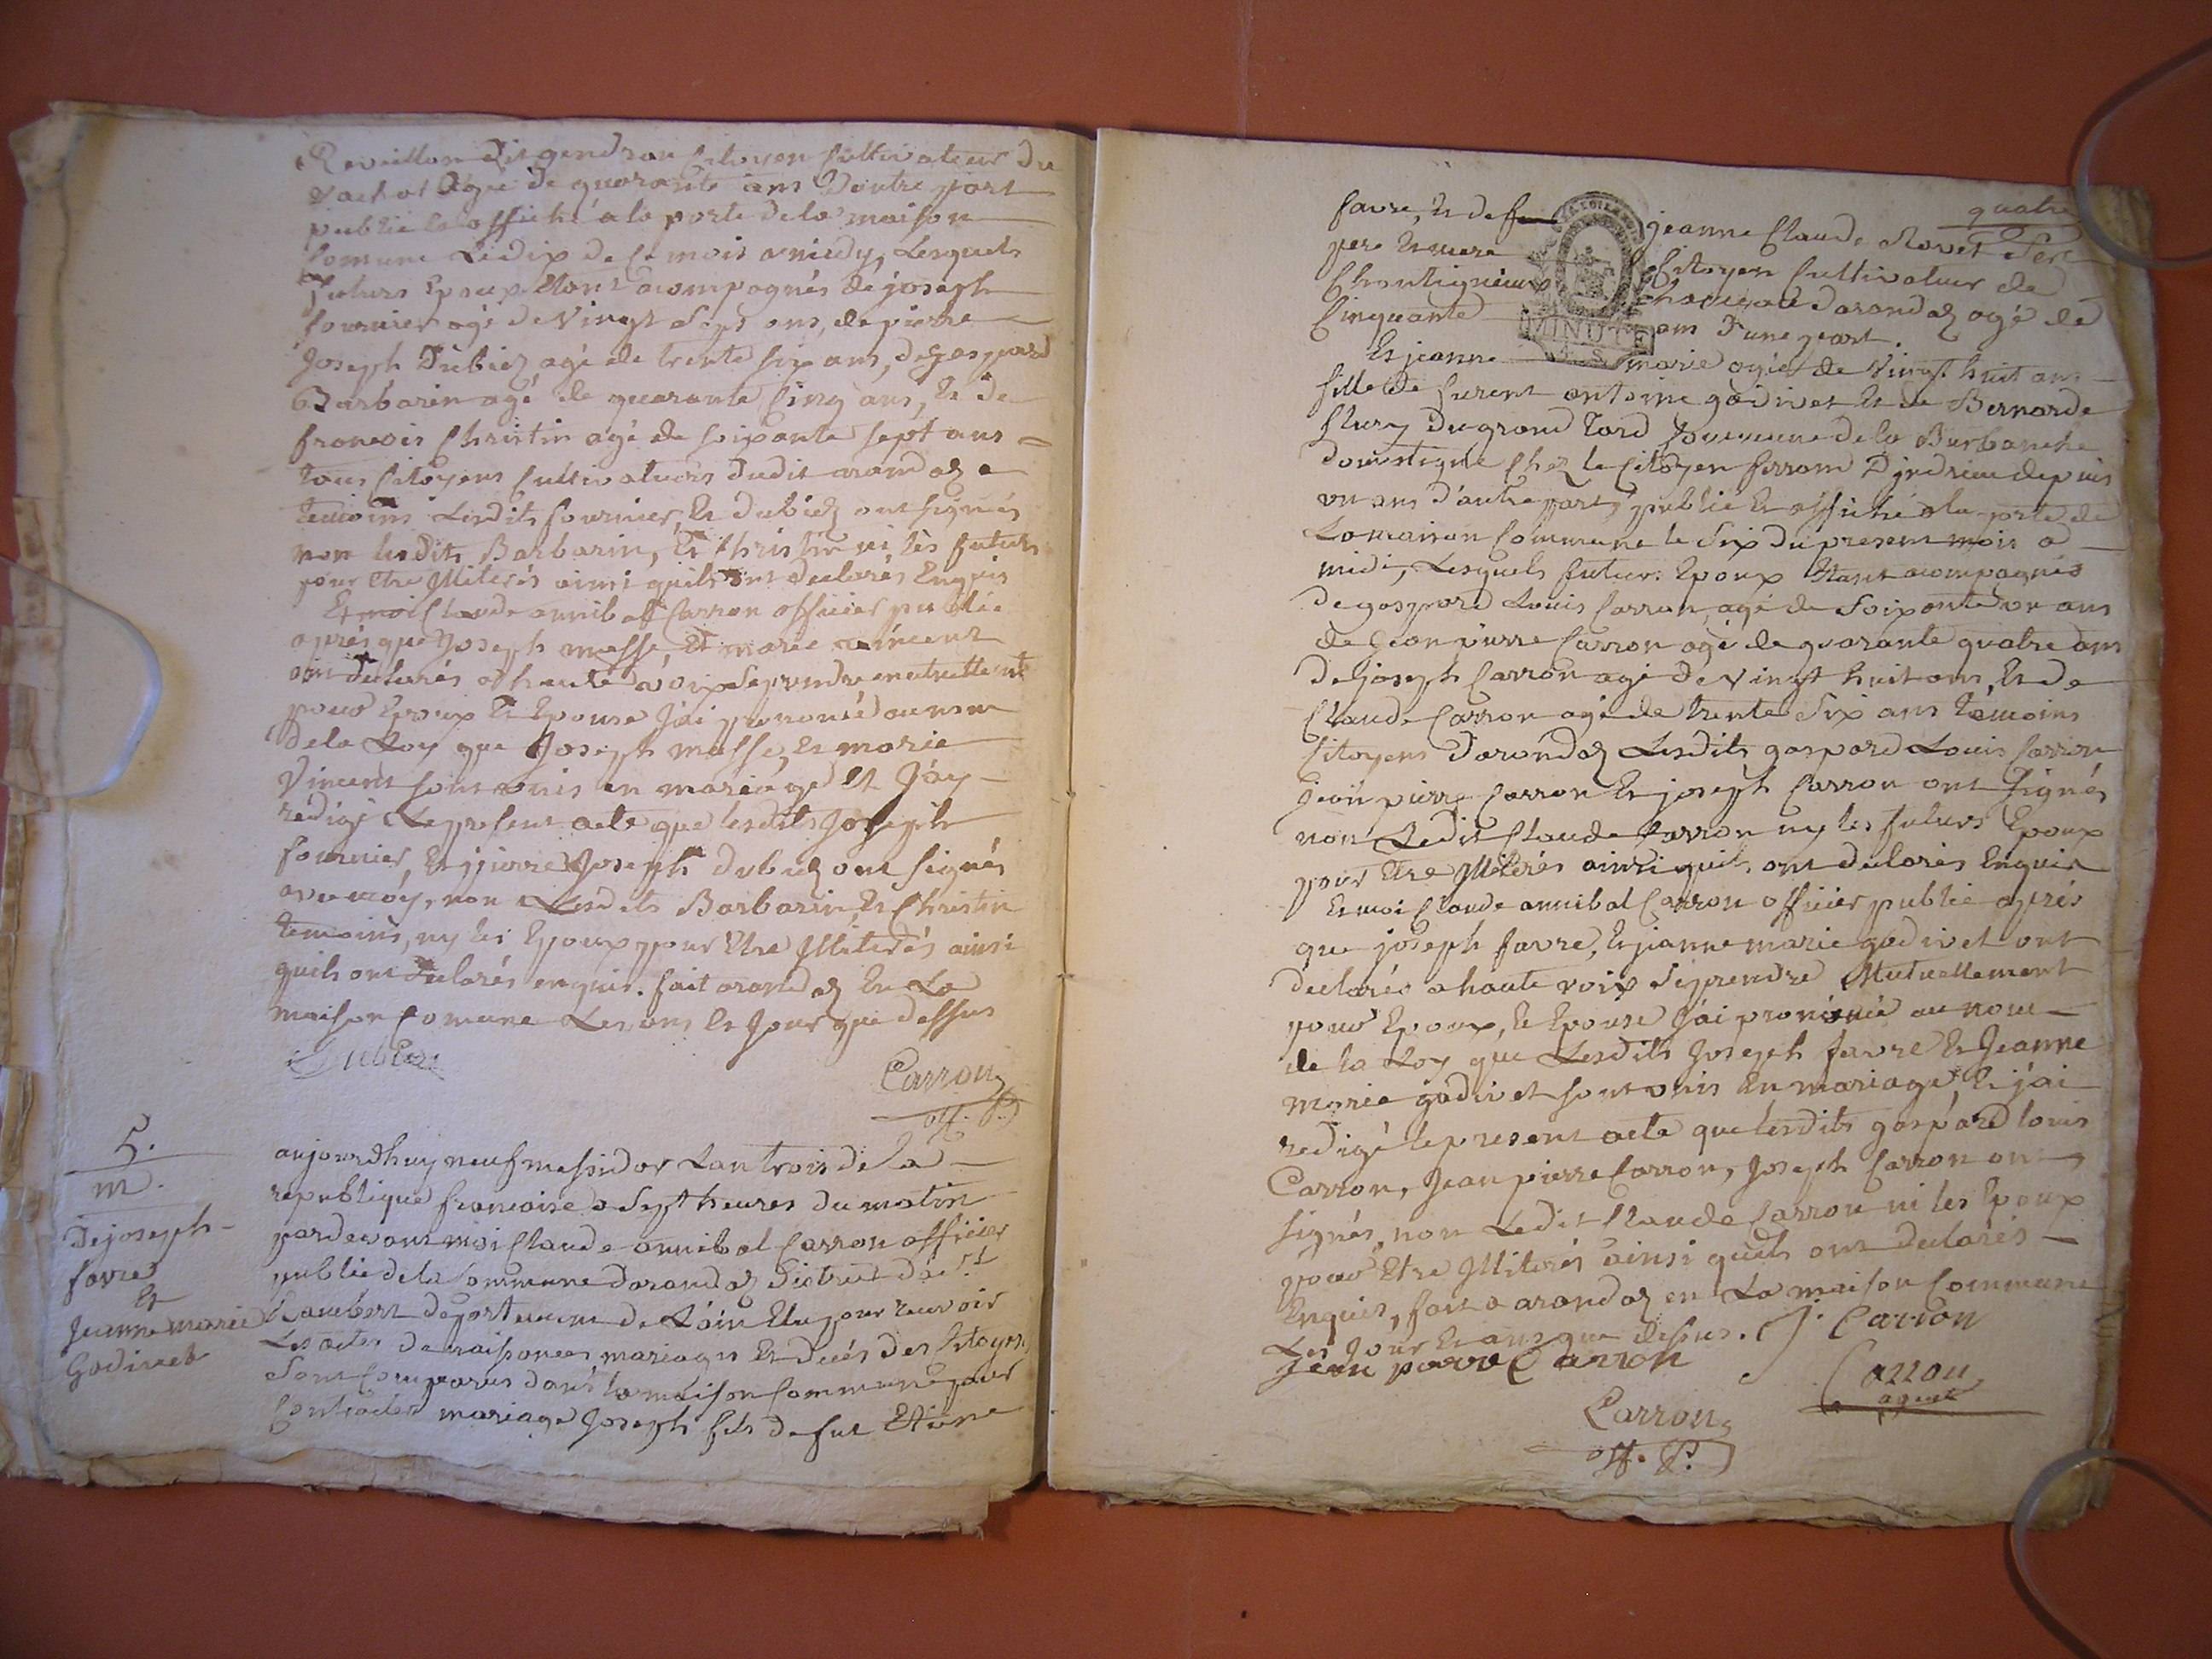 Revillon dit gendron Citoyen Cultivateur du
Vachat agée de quarante ans d'autre part
publié et affiché a la porte de la maison
Comune Le dix de Ce mois a midy, Lesquels
futurs Epoux Etant acompagnés de joseph
fournier agé de Vingt Sept ans, de pierre
Joseph Dubiez agé de trente six ans, de gaspard
Barbarin agé de quarante Cinq ans, Et de
francois Christin agé de soixante sept ans
tous Citoyens Cultivateurs dudit arandaz
temoins Lesdits fournier, Et dubiez ont signés
non lesdits Barbarin, Et Christin ni les futurs
pour Etre Illiterés ainsi quils ont declarés Enquis
Et moi Claude annibal Carron officier public
après que Joseph masse, Et marie vincent
ont declarés a haute voix se prendre mutuellement
pour Epoux Et Epouse J'ai prononcé au nom
de la Loy que Joseph masse, Et marie
Vincent sont unis en mariage et J'ay
rédigé Le present acte que lesdits Joseph
fournier, Et pierre Joseph dubiez ont signés
avec moy, non Lesdits Barbarin, Et Christin
temoins, ny les Epoux pour Etre Illiterés ainsi
quils ont declarés enquis. fait arandaz En La
maison Comune Les ans Et Jour que dessus
Dubiez
Carron
off. p.
5.
m.
De joseph
favre
Et
Jeanne marie
Godivet
aujourdhuy neuf messidor Lan trois de la
republique francoise a Sept heures du matin
pardevant moi Claude annibal Carron officier
public de la Commune darandaz District de St
Rambert departement de L'ain Elu pour recevoir
Les actes de naissances mariages Et decés des Citoyens
Sont Comparus dans la maison Commune pour
Contracter mariage Joseph fils de fut Etiene
quatre
favre, Et de jeanne Claude Rovet Ses
pere Et mere Citoyen Cultivateur de
darandaz agé de
Cinquante ans d'une part.
MINUTE
Et jeanne marie agée de Vingt huit ans
fille de furent antoine godivet Et de Bernarde
flury du grand Tard Commune de la Burbanche
domestique Chez le Citoyen ferrand D'jndrieu depuis
un ans d'autre part, publié Et affiché a la porte de
La maison Commune le Six du present mois a
midi, Lesquels futurs Epoux Etant acompagnés
de gaspard Louis Carron, agé de Soixante un ans
de Jean pierre Carron agé de quarante quatre ans
de Joseph Carron agé de Vingt huit ans, Et de
Claude Carron agé de trente Six ans temoins
Citoyens d'arandaz Lesdits gaspard Louis Carron
Jean pierre Carron Et joseph Carron ont signés
non Ledit Claude Carron ny les futurs Epoux
pour Etre Illiterés ainsi quils ont declarés Enquis
Et moi Claude annibal Carron officier public après
que joseph favre, Et jeanne marie godivet ont
declarés a haute voix Se prendre Mutuellement
pour Epoux, Et Epouse J'ai prononcé au nom
de la Loy que Lesdits Joseph favre Et Jeanne
marie godivet sont unis En mariage, Et j'ai
redigé le present acte que lesdits gaspard louis
Carron, Jean pierre Carron, Joseph Carron ont
signés, non Ledit Claude Carron ni les Epoux
pour Etre Illiterés ainsi quils ont declarés
Enquis, fait a arandaz en La maison Commune
Les Jour Et ans que dessus. J. Carron
Jean pierre Carron
Carron
agent
Carron
off. p.